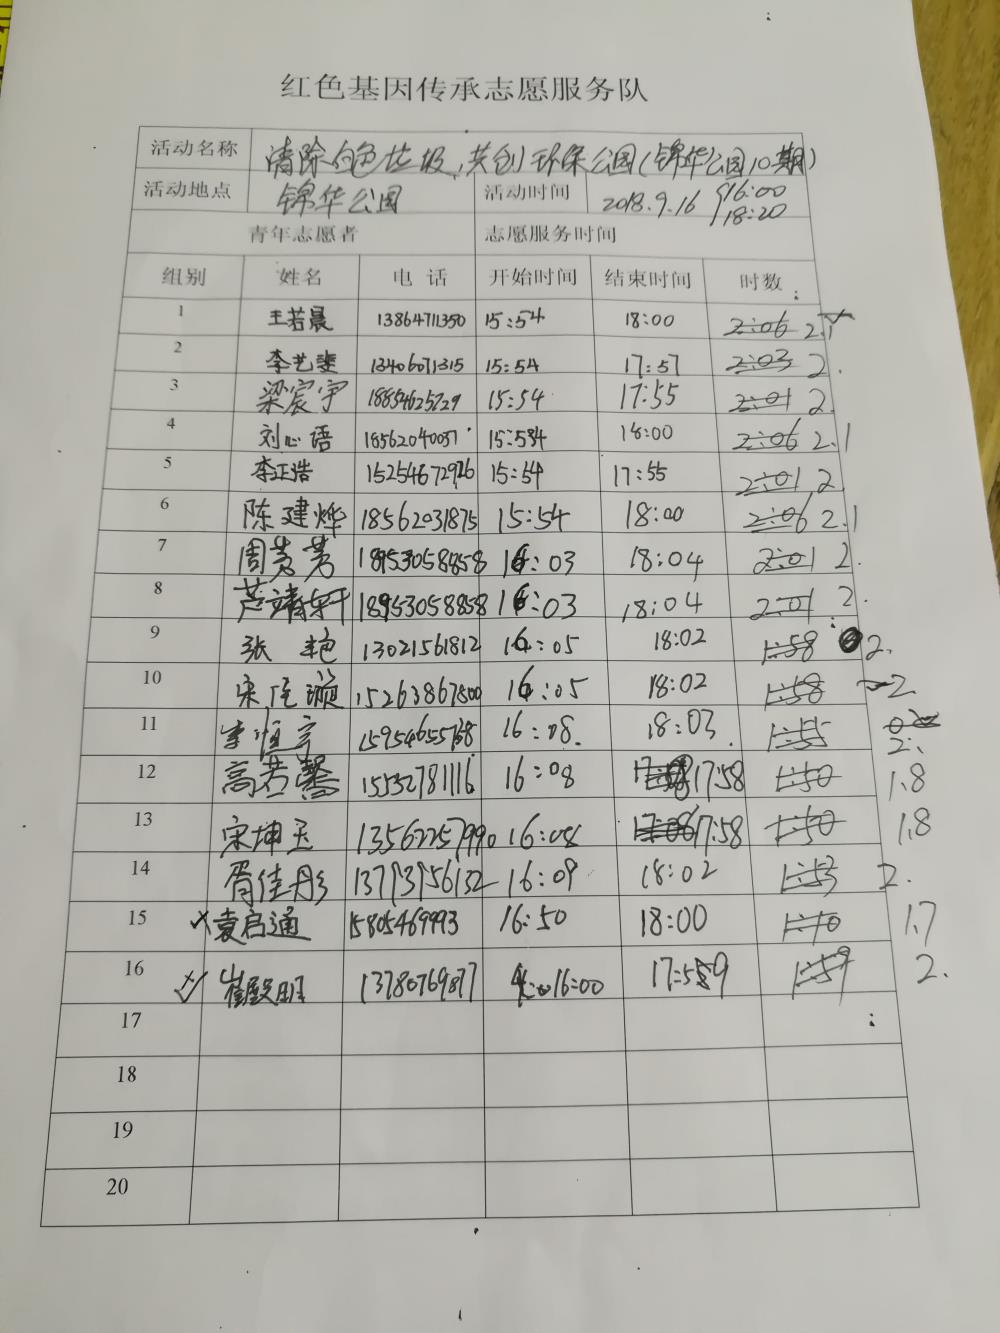 红色基因传承志愿服务队
活动名称 清除白色垃圾,共创环保公园(锦华公园10期)
活动地点 锦华公园 活动时间 2018.9.16 16:00
18:20
青年志愿者 志愿服务时间
组别 姓名 电话 开始时间 结束时间 时数
1 王若晨 13864711350 15:54 18:00 2:06 2.1
2 李艺斐 13406071315 15:54 17:57 2:03 2.
3 梁宸宇 18854625729 15:54 17:55 2:01 2.
4 刘心语 18562040051 15:54 18:00 2:06 2.1
5 李正浩 15254672926 15:54 17:55 2:01 2.
6 陈建烨 18562031875 15:54 18:00 2:06 2.1
7 周芳芳 18953058858 16:03 18:04 2:01 2.
8 芦靖轩 18953058858 16:03 18:04 2:01 2.
9 张艳 13021561812 16:05 18:02 1:58 2.
10 宋 璇 15263867800 16:05 18:02 1:58 2
11 李恒宇 16:08. 18:03. 1:55 2.
12 高若馨 15532781116 16:08 17:58 1:50 1.8
13 宋坤玉 13562257990 16:08 17:58 1:50 1.8
14 胥佳彤 13793956132 16:09 18:02 1:53 2.
15 袁启通 15805469993 16:50 18:00 1:10 1.7
16 崔殿明 13780769877 16:00 17:59 1:59 2.
17
18
19
20